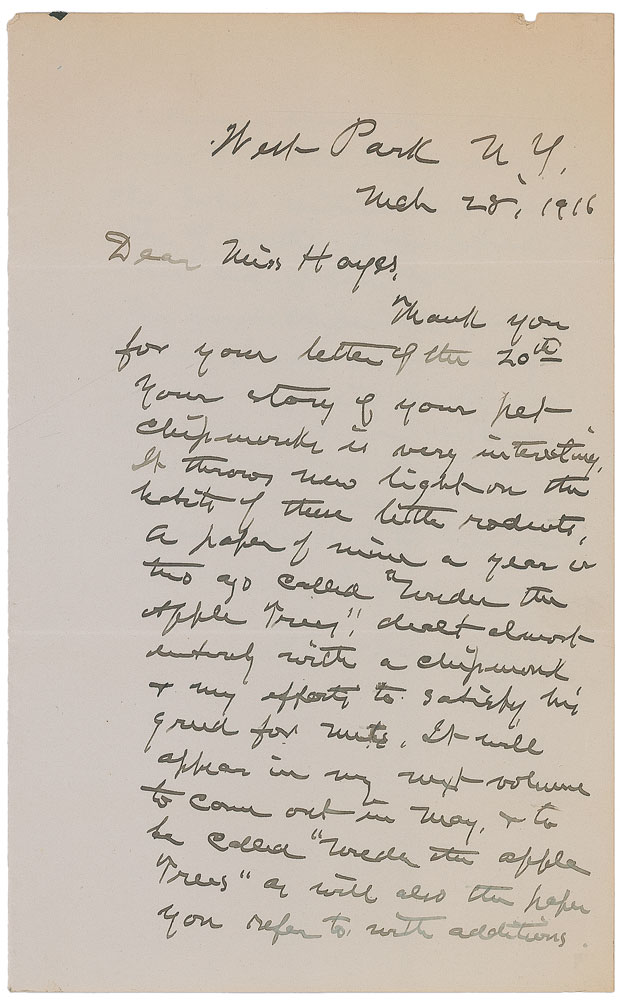 West Park N Y,
Mch 28, 1916
Dear Miss Hayes,
Thank you
for your letter of the 20th
Your story of your pet
chipmonks is very interesting,
It throws new light on the
habits of these little rodents,
A paper of mine a year or
two ago called "Under the
Apple Trees", dealt almost
entirely with a chipmonk
& my efforts to satisfy his
greed for nuts. It will
appear in my next volume
to come out in May, & to
be called "Under the apple
Trees" as will also the paper
you refer to with additions.